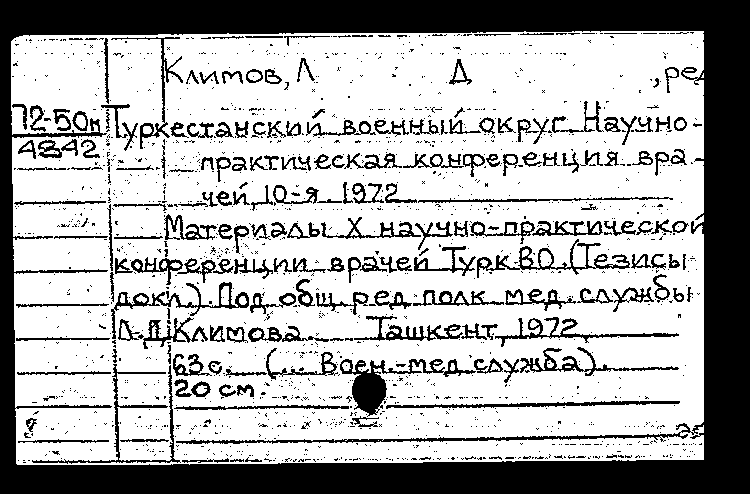 Климов, Л Д , ред
72-50к Туркестанский военный округ. Научно-
4842 практическая конференция вра-
чей, 10-я. 1972
Материалы X научно-практической
конференции врачей ТуркВО. (Тезисы
докл.) Под общ. ред. полк. мед. службы
Л.Д. Климова. Ташкент, 1972.
63 с. (... Воен.-мед. служба).
20 см.